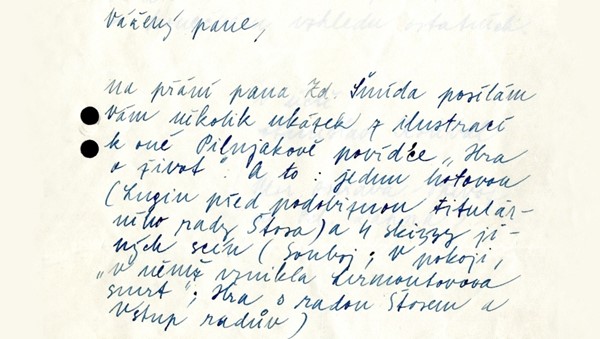 Vážený pane,
na přání pana Zd. Šmída posílám
Vám několik ukázek z ilustrací
k oné Pilnjakově povídce „Hra
o život". A to: jednu hotovou
(Lugin před podobiznou titulár-
ního rady Štosa) a 4 skizzy ji-
ných scén (Souboj; V pokoji,
„v němž vznikla Lermontovova
smrt"; Hra o radou Štosem a
Vstup radův)